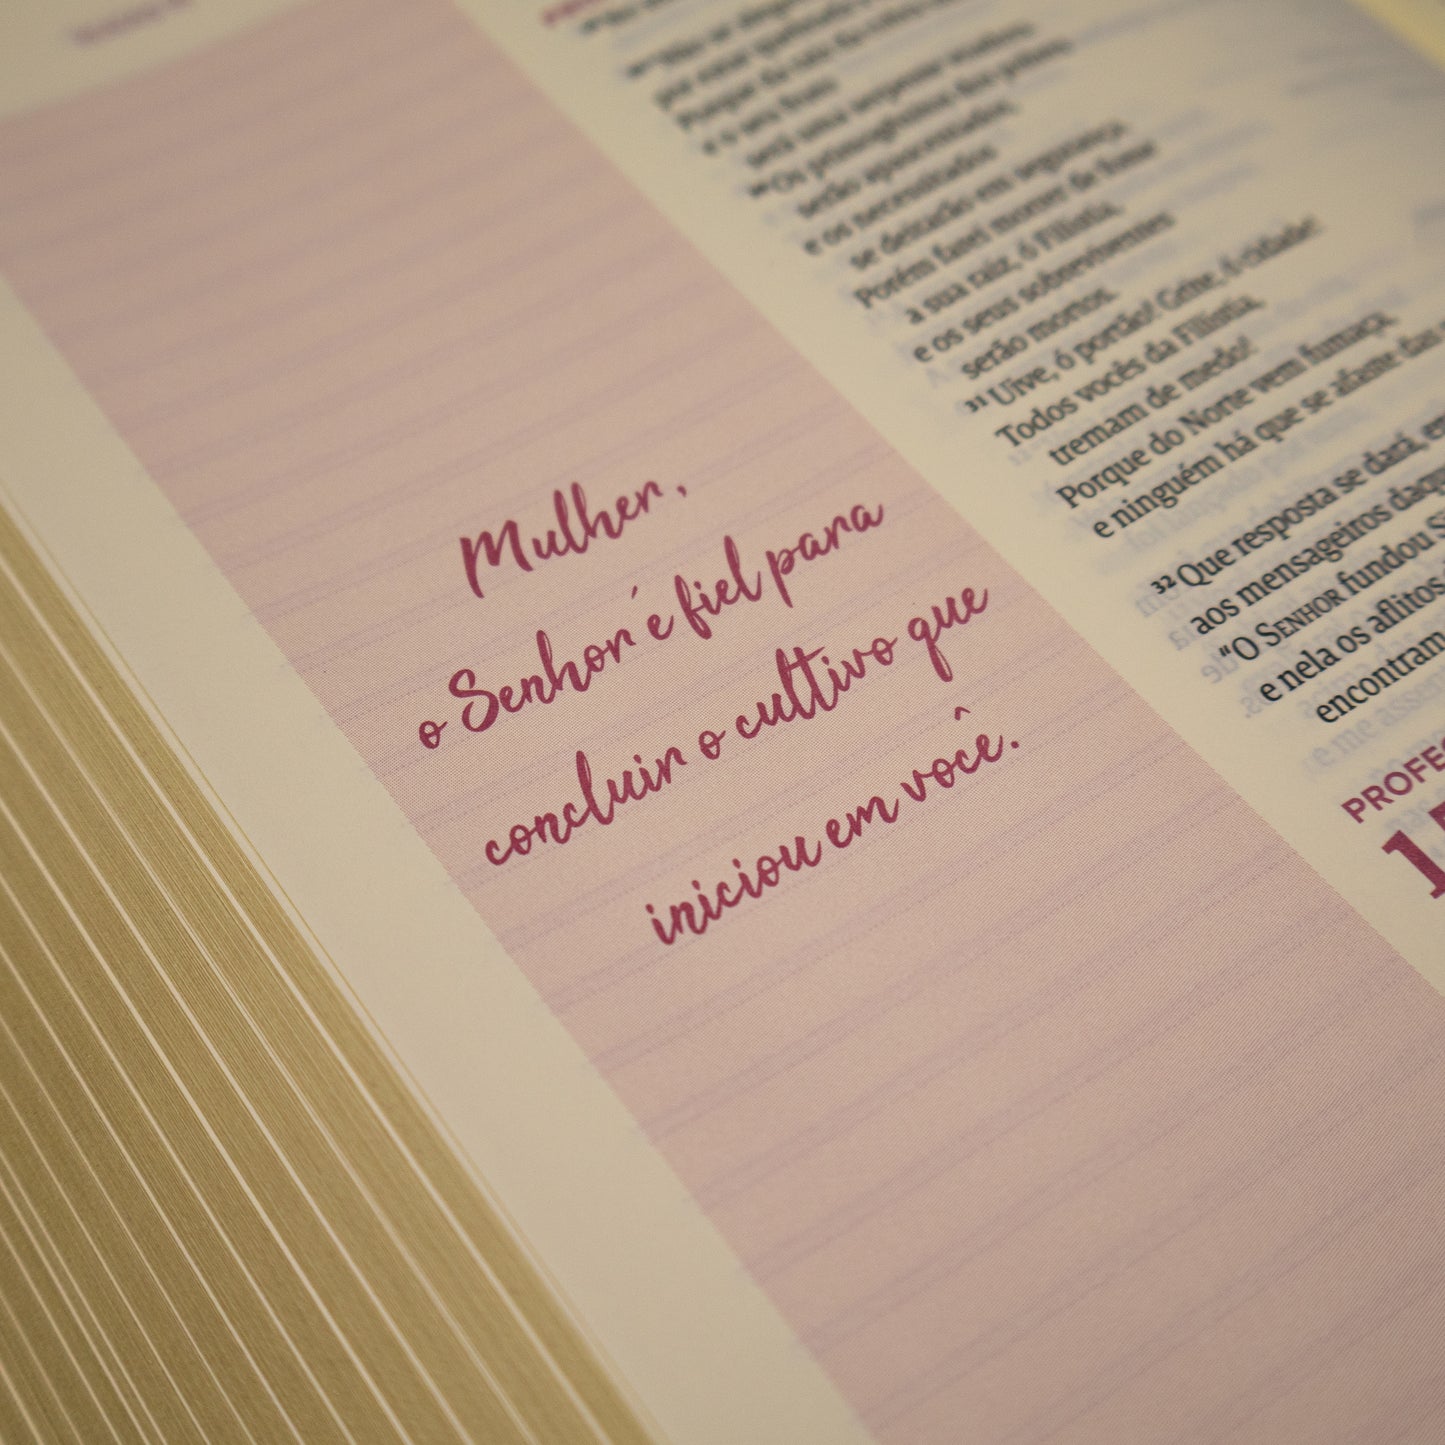 Mulher,
o Senhor é fiel para
concluir o cultivo que
iniciou em você.
será uma serpente voadora.
³⁰ Os primogênitos dos pobres
serão apascentados,
e os necessitados
se deitarão em segurança.
Porém farei morrer de fome
a sua raiz, ó Filístia,
e os seus sobreviventes
serão mortos.
³¹ Uive, ó portão! Grite, ó cidade!
Todos vocês da Filístia,
tremam de medo!
Porque do Norte vem fumaça,
e ninguém há que se afaste das
³² Que resposta se dará, en
aos mensageiros daqu
"O SENHOR fundou Si
e nela os aflitos
encontram
PROFE